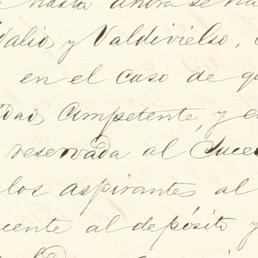 hasta ahora se ha
Valio y Valdivielso,
en el caso de q
idad competente, y e
reservada al Suce
los aspirantes al
cente al depósito y